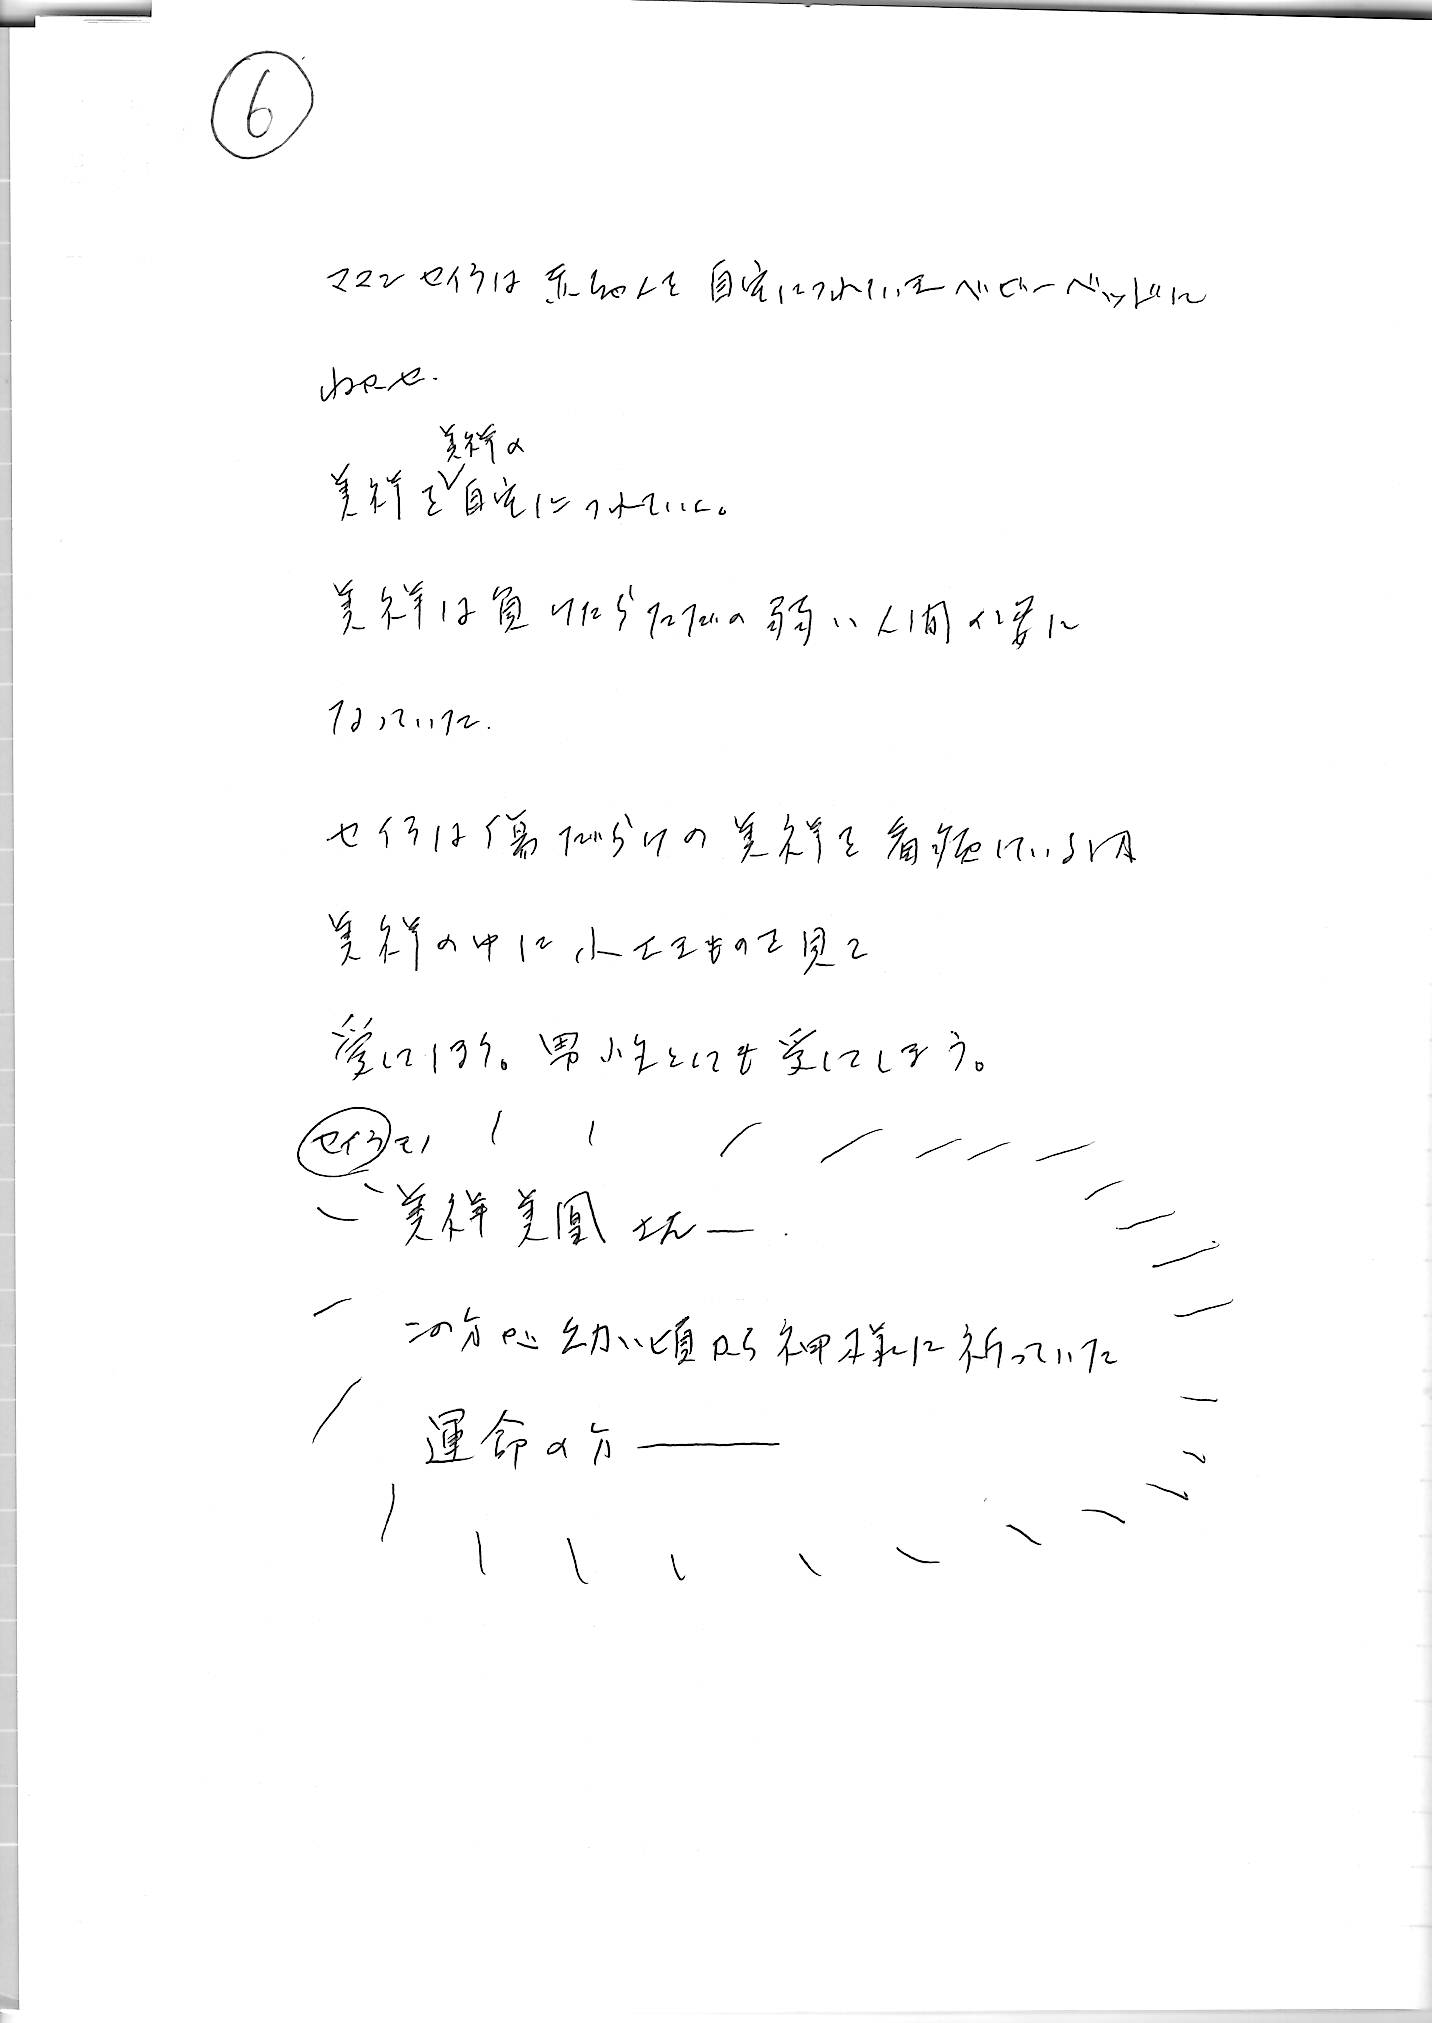 6
ママン セイラは 赤ちゃんを 自宅につれていき ベビーベッドに
ねかせ.
美祥の
美祥を自宅につれていく。
美祥は負けたらただの弱い人間の姿に
なっていた.
セイラは傷だらけの美祥を看病している内
美祥の中に小さきものを見て
愛してしまう。男性としても愛してしまう。
セイラ
美祥美凰さん―.
この方が幼い頃から神様に祈っていた
運命の方――